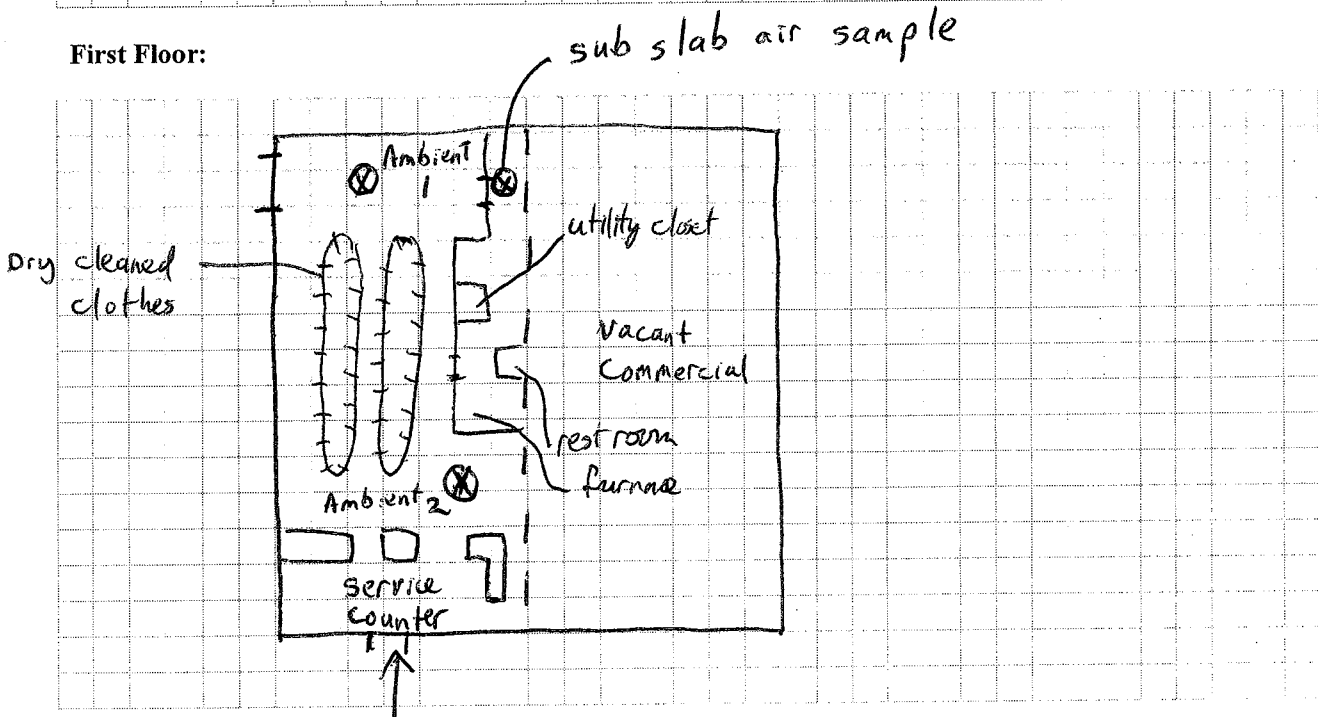 First Floor:
sub slab air sample
Ambient
1
utility closet
Dry cleaned
clothes
Vacant
Commercial
restroom
furnace
Ambient 2
Service
Counter